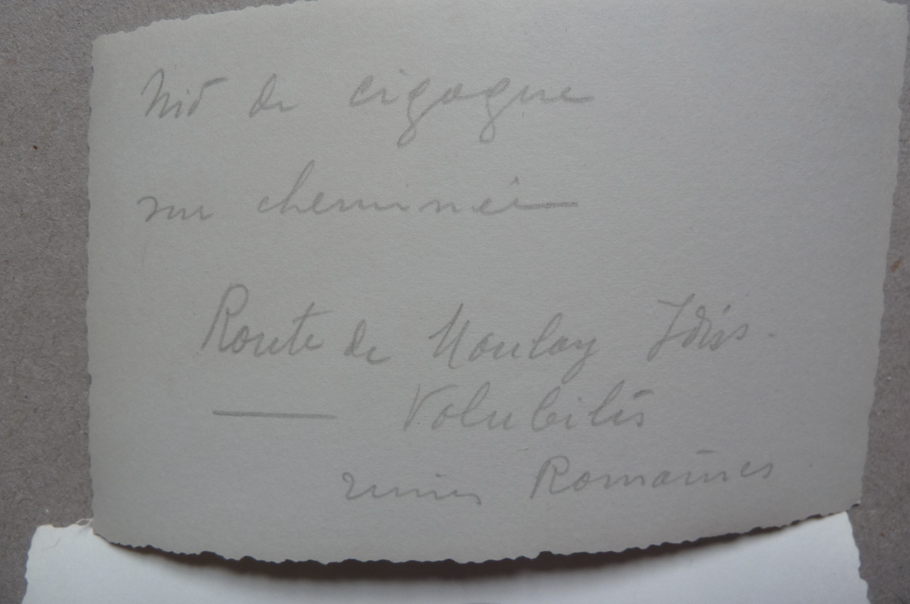 Nid de cigogne
sur cheminée
Route de Moulay Idris.
Volubilis
ruines Romaines